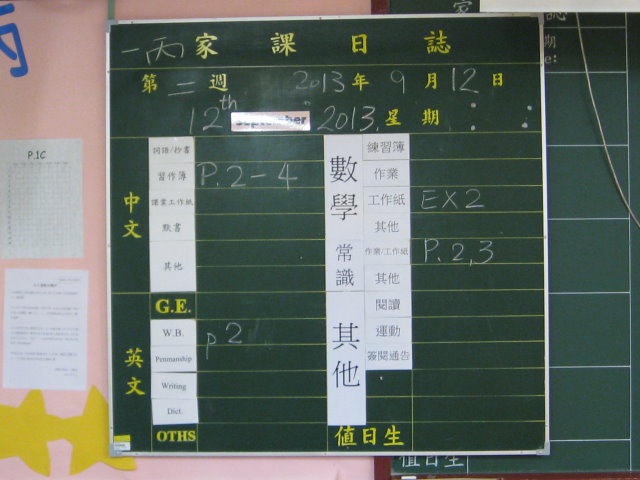 一丙家課日誌
第二週 2013年9月12日
12th september 2013 星期:
P.1C
中文
詞語/抄書
習作簿 P.2-4
課業工作紙
默書
其他
G.E.
英文
W.B. P2
Penmanship
Writing
Dict.
OTHS
數學
練習簿
作業
工作紙 EX2
其他
常識
作業/工作紙 P.2,3
其他
其他
閱讀
運動
簽閱通告
值日生
家
誌
期
e:
值日生